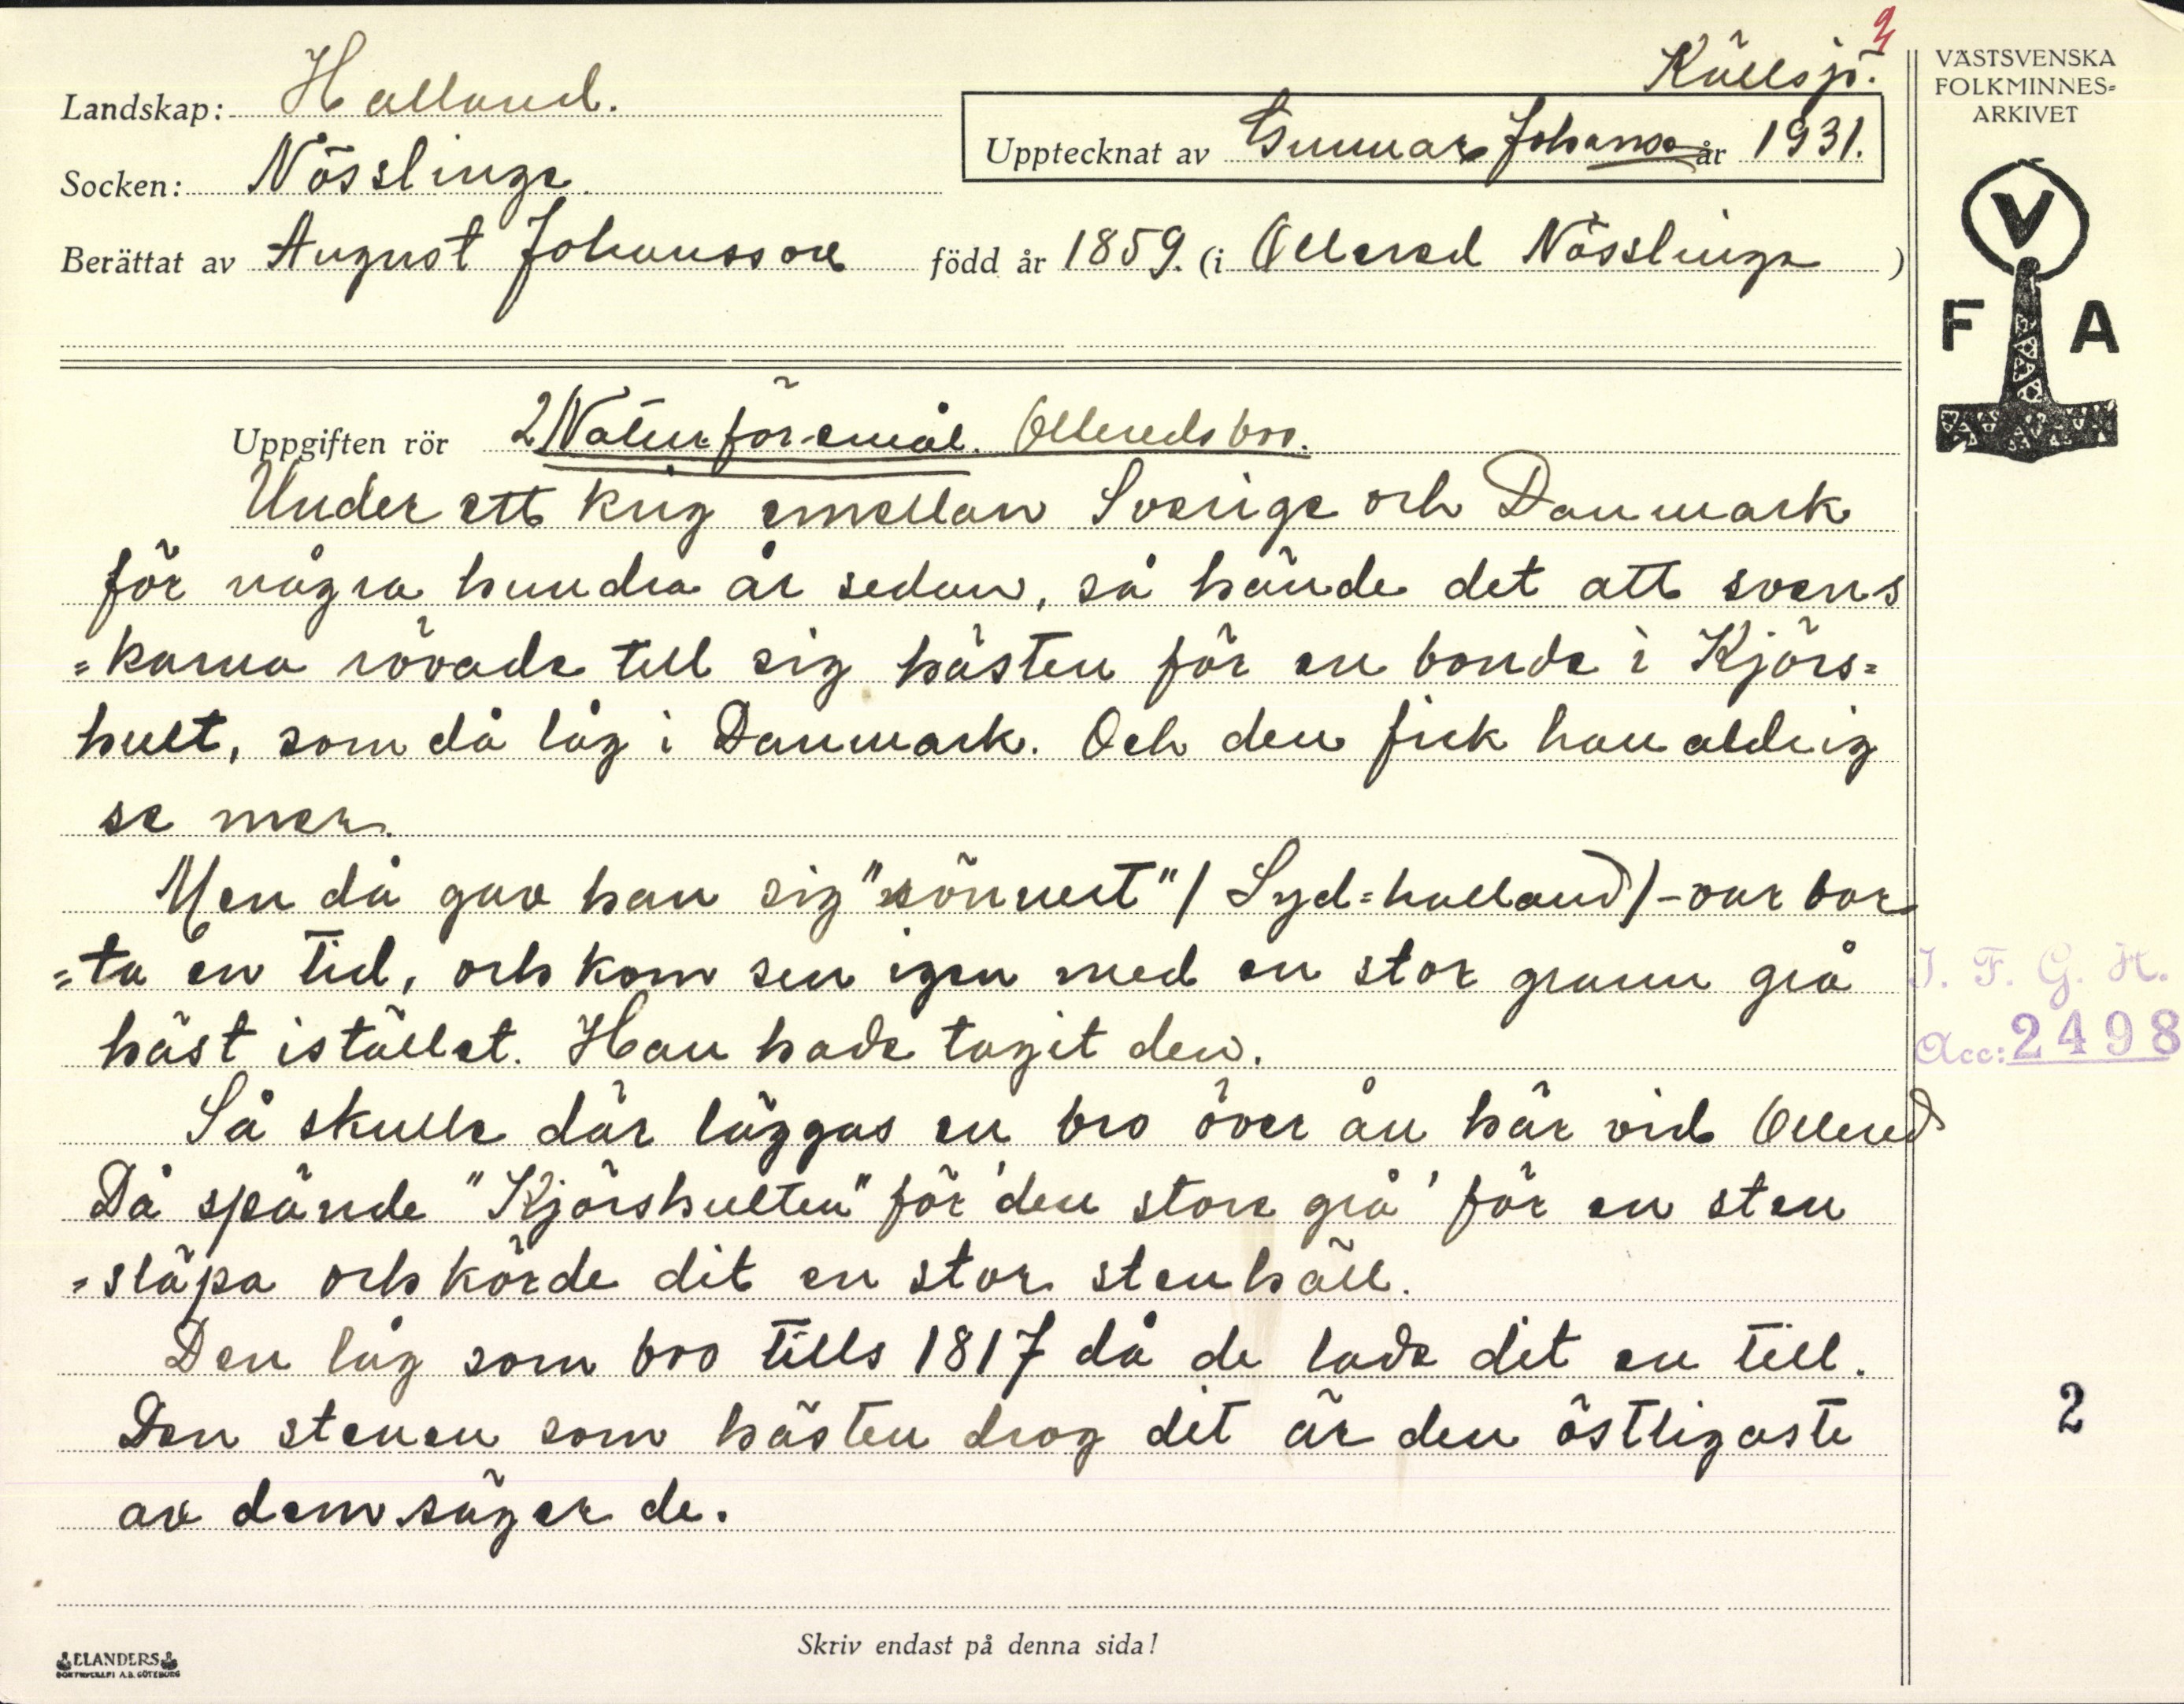 2
Källsjö.
Landskap: Halland.
Upptecknat av Gunnar Johansso år 1931.
Socken: Nösslinge.
Berättat av August Johansson född år 1859. (i Ollered Nösslinge )
VÄSTSVENSKA
FOLKMINNES=
ARKIVET
V
F A
Uppgiften rör 2 Naturföremål. Olleredsbro.
Under ett krig emellan Sverige och Danmark
för några hundra år sedan, så hände det att svens
=karna rövade till sig hästen för en bonde i Kjörs=
hult, som då låg i Danmark. Och den fick han aldrig
se mer.
Men då gav han sig "sönnert" / Syd=halland / - var bor
=ta en tid, och kom sen igen med en stor grann grå
häst istället. Han hade tagit den.
Så skulle där läggas en bro över ån här vid Ollered
Då spände "Kjörshulten" för 'den store grå' för en sten
=släpa och körde dit en stor stenhäll.
Den låg som bro tills 1817 då de lade dit en till.
Den stenen som hästen drog dit är den östligaste
av dem säger de.
I. F. G. H.
Acc: 2498
2
Skriv endast på denna sida!
ELANDERS
BOKTRYCKERI A.B. GÖTEBORG